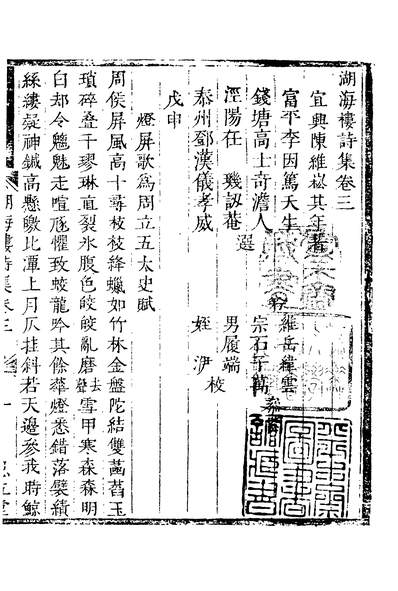 湖海樓詩集卷三
宜興陳維崧其年著
富平李因篤天生
錢塘高士奇澹人
涇陽任 璣訒菴
泰州鄧漢儀孝威
選
維岳緯雲
宗石子萬
男履端
姪
校
戊申
燈屏歌為周立五太史賦
周侯屏風高十尋枝枝絳蠟如竹林金盤陀結雙菡萏玉
瑣碎叠千璆琳直裂氷腹色皎皎亂磨去聲雪甲寒森森明
白却令魑魅走暄豗懼致蛟龍吟其餘華燈悉錯落襞績
絲縷凝神鍼高懸皦比潭上月仄挂斜若天邊參我時鯨
湖海樓詩集卷三
一